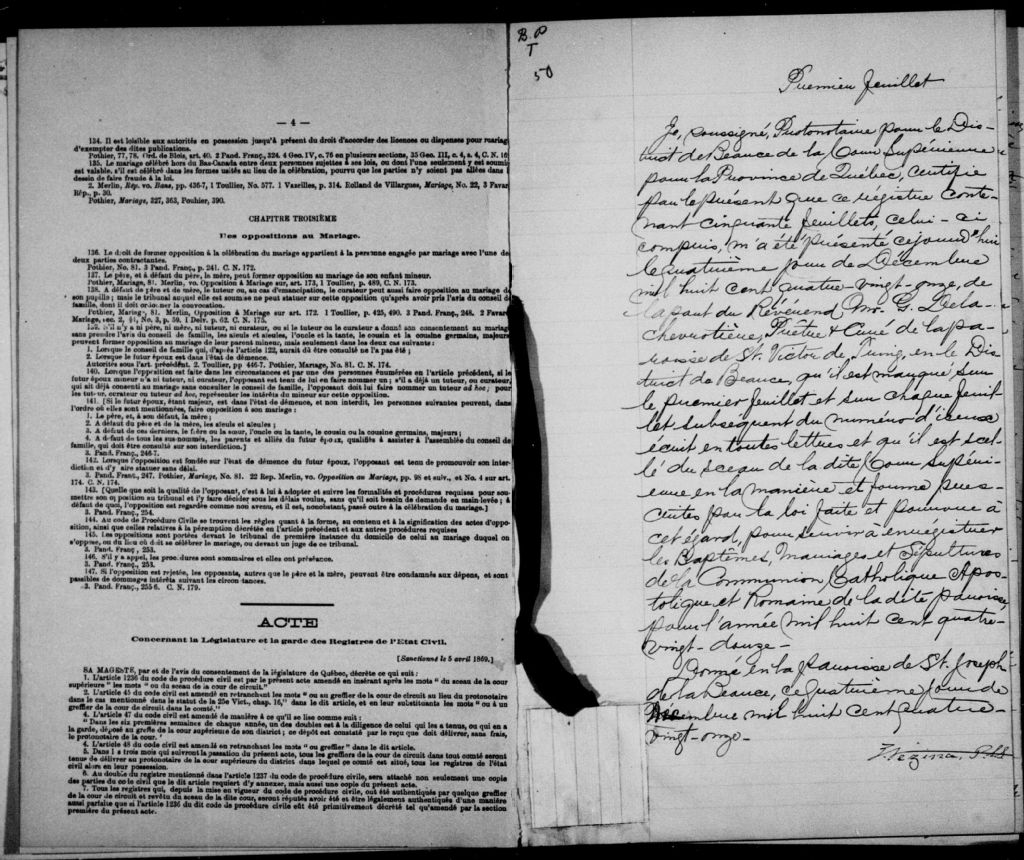 — 4 —
134. Il est loisible aux autorités en possession jusqu'à présent du droit d'accorder des licences ou dispenses pour mariage
d'exempter des dites publications.
Pothier, 77, 78. Ord. de Blois, art. 40. 2 Pand. Franç., 324. 4 Geo. IV, c. 76 en plusieurs sections, 35 Geo. III, c. 4, s. 4, C. N. 16
135. Le mariage célébré hors du Bas-Canada entre deux personnes sujettes à ses lois, ou dont l'une seulement y est soumi
est valable, s'il est célébré dans les formes usités au lieu de la célébration, pourvu que les parties n'y soient pas allées dans l
dessein de faire fraude à la loi.
2. Merlin, Rép. vo. Bans, pp. 436-7, 1 Toullier, No. 577. 1 Vazilles, p. 314. Rolland de Villargues, Mariage, No. 22, 3 Favar
Rép., p. 30.
Pothier, Mariage, 327, 363, Pouhier, 390.
CHAPITRE TROISIÈME
Des oppositions au Mariage.
136. Le droit de former opposition à la célébration du mariage appartient à la personne engagée par mariage avec l'une de
deux parties contractantes.
Pothier, No. 81. 3 Pand. Franç., p. 241. C. N. 172.
137. Le père, et à défaut du père, la mère, peut former opposition au mariage de son enfant mineur.
Pothier, Mariage, 81. Merlin, vo. Opposition à Mariage sur art. 173, 1 Toullier, p. 489, C. N. 173.
138. A défaut de père et de mère, le tuteur ou, au cas d'émancipation, le curateur peut aussi faire opposition au mariage de
son pupille; mais le tribunal auquel elle est soumise ne peut statuer sur cette opposition qu'après avoir pris l'avis du conseil de
famille, dont il doit ordonner la convocation.
Pothier, Mariage, 81. Merlin, Opposition à Mariage sur art. 172. 1 Toullier, p. 425, 490. 3 Pand. Franç., 248. 2 Favar
Mariage, sec. 2, § 1, No. 3, p. 59. 1 Delv. p. 62. C. N. 175.
139. S'il n'y a ni père, ni mère, ni tuteur, ni curateur, ou si le tuteur ou le curateur a donné son consentement au mariage
sans prendre l'avis du conseil de famille, les aïeuls et aïeules, l'oncle et la tante, le cousin et la cousine germains, majeurs
peuvent former opposition au mariage de leur parent mineur, mais seulement dans les deux cas suivants :
1. Lorsque le conseil de famille qui, d'après l'article 122, aurait dû être consulté ne l'a pas été ;
2. Lorsque le futur époux est dans l'état de démence.
Autorités sous l'art. précédent. 2 Toullier, pp 446-7. Pothier, Mariage, No. 81. C. N. 174.
140. Lorsque l'opposition est faite dans les circonstances et par une des personnes énumérées en l'article précédent, si le
futur époux mineur n'a ni tuteur, ni curateur, l'opposant est tenu de lui en faire nommer un ; s'il a déjà un tuteur, ou curateur,
qui ait déjà consenti au mariage sans consulter le conseil de famille, l'opposant doit lui faire nommer un tuteur ad hoc ; pour
les tuteur, curateur ou tuteur ad hoc, représenter les intérêts du mineur sur cette opposition.
141. [Si le futur époux, étant majeur, est dans l'état de démence, et non interdit, les personnes suivantes peuvent, dans
l'ordre où elles sont mentionnées, faire opposition à son mariage :
1. Le père, et, à son défaut, la mère ;
2. A défaut du père et de la mère, les aïeuls et aïeules ;
3. A défaut de ces derniers, le frère ou la sœur, l'oncle ou la tante, le cousin ou la cousine germains, majeurs ;
4. A défaut de tous les sus-nommés, les parents et alliés du futur époux, qualifiés à assister à l'assemblée du conseil de
famille, qui doit être consulté sur son interdiction.]
3. Pand. Franç., 246-7.
142. Lorsque l'opposition est fondée sur l'état de démence du futur époux, l'opposant est tenu de promouvoir son inter-
diction et d'y faire statuer sans délai.
2. Pand. Franç., 247. Pothier, Mariage, No. 81. 22 Rep. Merlin, vo. Opposition au Mariage, pp. 98 et suiv., et No. 4 sur art.
174. C. N. 174.
143. [Quelle que soit la qualité de l'opposant, c'est à lui à adopter et suivre les formalités et procédures requises pour sou-
mettre son opposition au tribunal et l'y faire décider sous les délais voulus, sans qu'il soit besoin de demande en main-levée ; à
défaut de quoi, l'opposition est regardée comme non avenu, et il est, nonobstant, passé outre à la célébration du mariage.]
3. Pand. Franç., 254.
144. Au code de Procédure Civile se trouvent les règles quant à la forme, au contenu et à la signification des actes d'oppo-
sition, ainsi que celles relatives à la péremption décrétée en l'article précédent et aux autres procédures requises
145. Les oppositions sont portées devant le tribunal de première instance du domicile de celui au mariage duquel on
s'oppose, ou du lieu où doit se célébrer le mariage, ou devant un juge de ce tribunal.
3. Pand. Franç., 253.
146. S'il y a appel, les procédures sont sommaires et elles ont préséance.
3. Pand. Franç., 253.
147. Si l'opposition est rejetée, les opposants, autres que le père et la mère, peuvent être condamnés aux dépens, et sont
passibles de dommages intérêts suivant les circonstances.
3. Pand. Franç., 255-6. C. N. 179.
ACTE
Concernant la Législature et la garde des Registres de l'Etat Civil.
[Sanctionné le 5 avril 1869.]
SA MAGESTÉ, par et de l'avis du consentement de la législature de Québec, décrète ce qui suit :
1. L'article 1236 du code de procédure civil est par le présent acte amendé en insérant après les mots " du sceau de la cour
supérieure " les mots " ou du sceau de la cour de circuit."
2. L'article 45 du code civil est amendé en retranchant les mots " ou au greffier de la cour de circuit au lieu du protonotaire
dans le cas mentionné dans le statut de la 25e Vict., chap. 16," dans le dit article, et en leur substituant les mots " ou à un
greffier de la cour de circuit dans le comté."
4. L'article 47 du code civil est amendé de manière à ce qu'il se lise comme suit :
" Dans les six premières semaines de chaque année, un des doubles est à la diligence de celui qui les a tenus, ou qui en a
la garde, déposé au greffe de la cour supérieure de son district ; ce dépôt est constaté par le reçu que doit délivrer, sans frais,
le protonotaire de la cour. "
4. L'article 48 du code civil est amendé en retranchant les mots " ou greffier " dans le dit article.
5. Dans les trois mois qui suivront la passation du présent acte, tous les greffiers de la cour de circuit dans tout comté seront
tenus de délivrer au protonotaire de la cour supérieure du district dans lequel ce comté est situé, tous les registres de l'état
civil alors en leur possession.
6. Au double du registre mentionné dans l'article 1237 du code de procédure civile, sera attaché non seulement une copie
des parties du code civil que le dit article requiert d'y annexer, mais aussi une copie du présent acte.
7. Tous les registres qui, depuis la mise en vigueur du code de procédure civile, ont été authentiqués par quelque greffier
de la cour de circuit et revêtu du sceau de la dite cour, seront réputés avoir été et être légalement authentiqués d'une manière
aussi parfaite que si l'article 1236 du dit code de procédure civile eût été primitivement décrété tel qu'amendé par la section
première du présent acte.
B. P
T
50
Premier feuillet
Je, soussigné, Protonotaire pour le Dis-
trict de Beauce de la Cour Supérieure
pour la Province de Québec, certifie
par le présent que ce régistre conte-
nant cinquante feuillets, celui-ci
compris, m'a été présenté cejourd'hui
le quatrième jour de Décembre
mil huit cent quatre-vingt-onze, de
la part du Révérend Mr. G. Dela-
chevrotière, Prêtre & Curé de la pa-
roisse de St. Victor de Tring, en le Dis-
trict de Beauce, qu'il est marqué sur
le premier feuillet et sur chaque feuil-
let subséquent du numéro d'iceux
écrit en toutes lettres et qu'il est scel-
lé du sceau de la dite Cour Supéri-
eure en la manière et forme pres-
crites par la loi faite et pourvue à
cet égard, pour servir à enrégistrer
les Baptêmes, Mariages et Sépultures
de la Communion Catholique Apos-
tolique et Romaine de la dite paroisse,
pour l'année mil huit cent quatre-
vingt-douze.-
Donné en la paroisse de St. Joseph
de la Beauce, ce quatrième jour de
Décembre mil huit cent quatre-
vingt-onze-
Vézina, P.